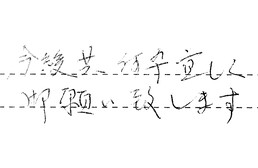 今後共何卒宜しく
御願い致します